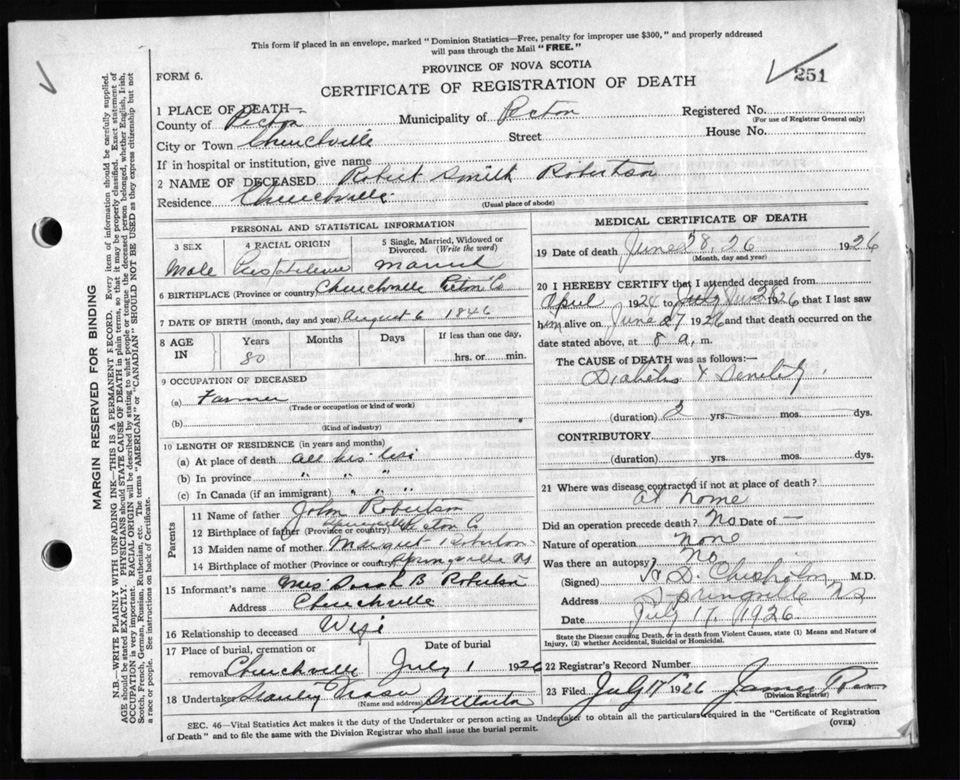 This form if placed in an envelope, marked "Dominion Statistics—Free, penalty for improper use $300," and properly addressed
will pass through the Mail "FREE."
PROVINCE OF NOVA SCOTIA
251
FORM 6.
CERTIFICATE OF REGISTRATION OF DEATH
1 PLACE OF DEATH—
County of Pictou Municipality of Pictou Registered No.
(For use of Registrar General only)
City or Town Churchville Street House No.
If in hospital or institution, give name
2 NAME OF DECEASED Robert Smith Robertson
Residence Churchville
(Usual place of abode)
MARGIN RESERVED FOR BINDING
N.B.—WRITE PLAINLY WITH UNFADING INK—THIS IS A PERMANENT RECORD. Every item of information should be carefully supplied.
AGE should be stated EXACTLY. PHYSICIANS should STATE CAUSE OF DEATH in plain terms, so that it may be properly classified. Exact statement of
OCCUPATION is very important. RACIAL ORIGIN will be described by stating to what people or tongue the deceased person belonged, whether English, Irish,
Scotch, French, German, Russian, Ruthenian, etc. The terms "AMERICAN" or "CANADIAN" SHOULD NOT BE USED as they express citizenship but not
a race or people. See instructions on back of Certificate.
PERSONAL AND STATISTICAL INFORMATION
3 SEX
Male
4 RACIAL ORIGIN
5 Single, Married, Widowed or
Divorced. (Write the word)
Married
6 BIRTHPLACE (Province or country) Churchville Pictou Co
7 DATE OF BIRTH (month, day and year) August 6 1846
8 AGE IN
Years
80
Months
Days
If less than one day,
hrs. or min.
9 OCCUPATION OF DECEASED
(a) Farmer
(Trade or occupation or kind of work)
(b)
(Kind of industry)
10 LENGTH OF RESIDENCE (in years and months)
(a) At place of death all his life
(b) In province " " "
(c) In Canada (if an immigrant) " " "
Parents
11 Name of father John Robertson
12 Birthplace of father (Province or country) Pictou Co
13 Maiden name of mother Margret Robertson
14 Birthplace of mother (Province or country) Springville NS
15 Informant's name Mrs Sarah B Robertson
Address Churchville
16 Relationship to deceased Wife
17 Place of burial, cremation or
removal Churchville
Date of burial
July 1 1926
18 Undertaker Stanley Fraser
(Name and address)
MEDICAL CERTIFICATE OF DEATH
19 Date of death June 28, 26 1926
(Month, day and year)
20 I HEREBY CERTIFY that I attended deceased from
April 1924 to June 28 1926 that I last saw
him alive on June 27 1926 and that death occurred on the
date stated above, at 8 a, m.
The CAUSE OF DEATH was as follows:—
Diabetes & Senility
(duration) 2 yrs. mos. dys.
CONTRIBUTORY
(duration) yrs. mos. dys.
21 Where was disease contracted if not at place of death?
at home
Did an operation precede death? No Date of —
Nature of operation none
Was there an autopsy? No
(Signed) Chisholm M.D.
Address Springville NS
Date July 17, 1926
State the Disease causing Death, or in death from Violent Causes, state (1) Means and Nature of
Injury, (2) whether Accidental, Suicidal or Homicidal.
22 Registrar's Record Number
23 Filed July 17 1926 James
(Division Registrar)
SEC. 46—Vital Statistics Act makes it the duty of the Undertaker or person acting as Undertaker to obtain all the particulars required in the "Certificate of Registration
of Death" and to file the same with the Division Registrar who shall issue the burial permit.
(OVER)